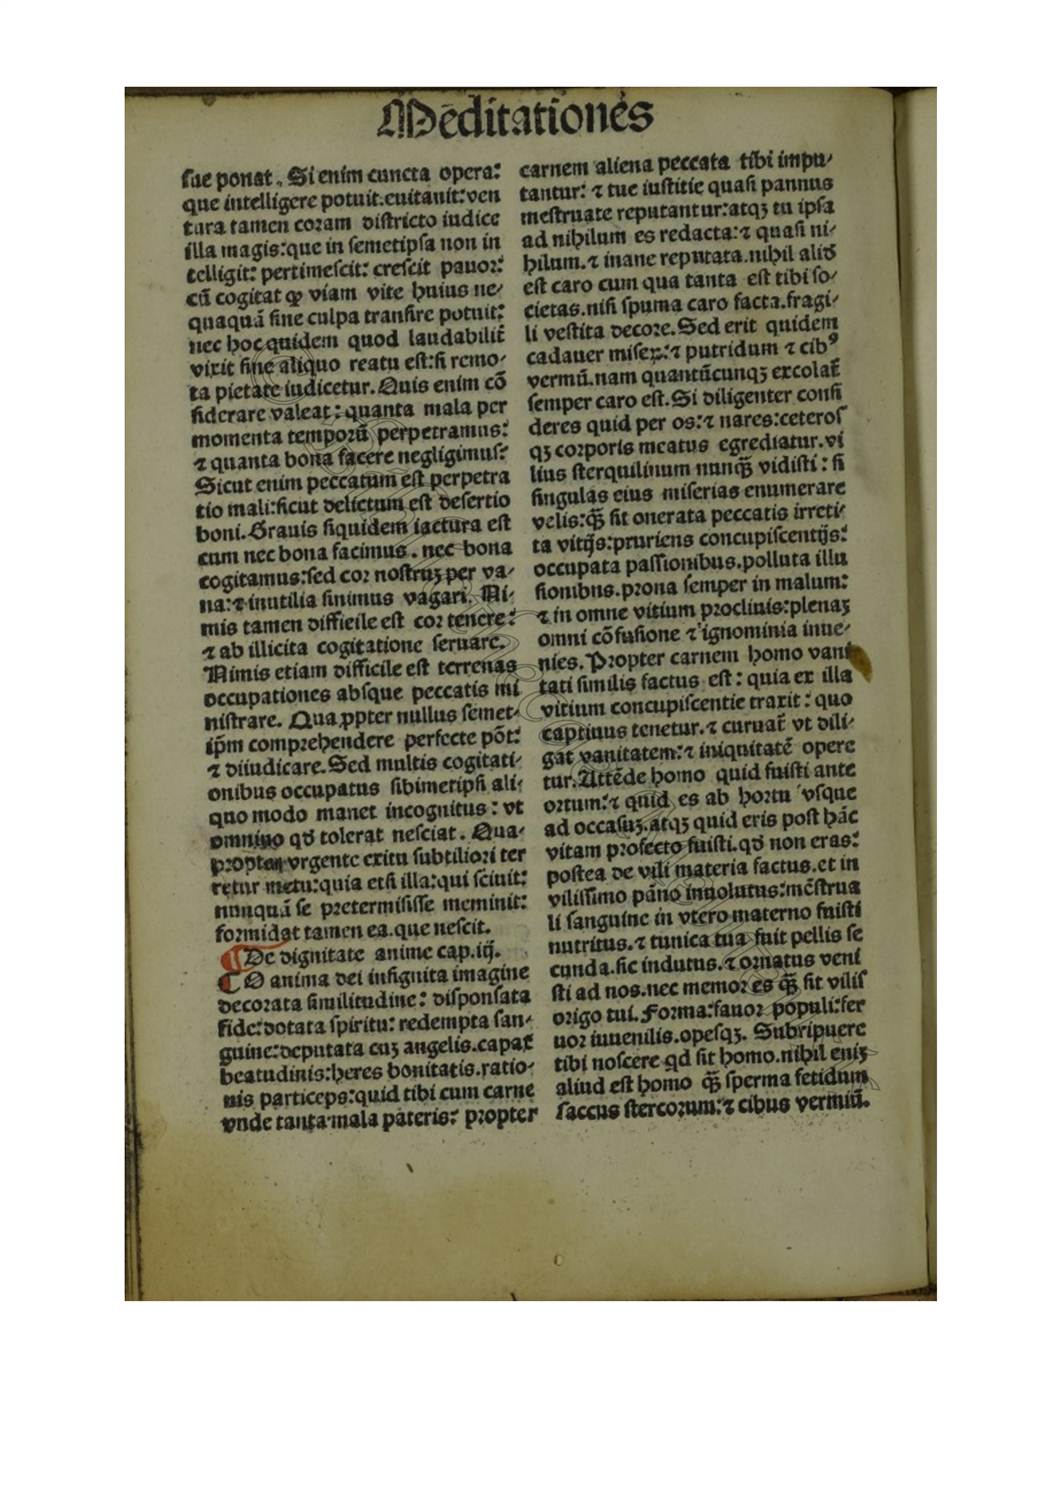 Meditationes
sue ponat. Si enim cuncta opera:
que intelligere potuit.euitauit:ven
tura tamen coram districto iudice
illa magis:que in semetipsa non in
telligit: pertimescit: crescit pauor:
cū cogitat ꝙ viam vite huius ne⸗
quaquā sine culpa transire potuit:
nec hoc quidem quod laudabilit̄
vixit sine aliquo reatu est:si remo⸗
ta pietate iudicetur. Quis enim cō
siderare valeat: quanta mala per
momenta temporū perpetramus:
⁊ quanta bona facere negligimus?
Sicut enim peccatum est perpetra
tio mali:sicut delictum est desertio
boni. Grauis siquidem iactura est
cum nec bona facimus. nec bona
cogitamus:sed cor nostruꝫ per va⸗
na:⁊ inutilia sinimus vagari. Ni⸗
mis tamen difficile est cor tenere:
⁊ ab illicita cogitatione seruare.
Nimis etiam difficile est terrenas
occupationes absque peccatis mi
nistrare. Qua ꝓpter nullus semet⸗
ip̄m comprehendere perfecte pōt:
⁊ diiudicare. Sed multis cogitati⸗
onibus occupatus sibimetipsi ali⸗
quo modo manet incognitus: vt
omnino qđ tolerat nesciat. Qua⸗
propter vrgente exitu subtiliori ter
retur metu:quia etsi illa:qui sciuit:
nunquā se pretermisisse meminit:
formidat tamen ea.que nescit.
¶De dignitate anime cap.iij.
O anima dei insignita imagine
decorata similitudine: disponsata
fide:dotata spiritu: redempta san⸗
guine:deputata cuꝫ angelis.capax
beatudinis:heres bonitatis.ratio⸗
nis particeps:quid tibi cum carne
vnde tanta mala pateris? propter
carnem aliena peccata tibi impu⸗
tantur: ⁊ tue iustitie quasi pannus
mestruate reputantur:atqꝫ tu ipsa
ad nihilum es redacta:⁊ quasi ni⸗
hilum.⁊ inane reputata.nihil aliđ
est caro cum qua tanta est tibi so⸗
cietas.nisi spuma caro facta.fragi⸗
li vestita decore. Sed erit quidem
cadauer miseꝝ:⁊ putridum ⁊ cibꝰ
vermū.nam quantūcunqꝫ excolat̄
semper caro est. Si diligenter consi
deres quid per os:⁊ nares:ceteros
qꝫ corporis meatus egrediatur.vi
lius sterquilinum nunꝙ̄ vidisti: si
singulas eius miserias enumerare
velis:ꝙ̄ sit onerata peccatis irreti⸗
ta vitijs:pruriens concupiscentijs:
occupata passionibus.polluta illu
sionibus.prona semper in malum:
⁊ in omne vitium procliuis:plenaꝫ
omni cōfusione ⁊ ignominia inue⸗
nies. Propter carnem homo vani
tati similis factus est: quia ex illa
vitium concupiscentie traxit: quo
captiuus tenetur.⁊ curuat̄ vt dili⸗
gat vanitatem:⁊ iniquitatē opere
tur. Attēde homo quid fuisti ante
ortum:⁊ quid es ab hortu vsque
ad occasuꝫ.atqꝫ quid eris post hāc
vitam profecto fuisti.qđ non eras:
postea de vili materia factus.et in
vilissimo pāno inuolutus:mēstrua
li sanguine in vtero materno fuisti
nutritus.⁊ tunica tua fuit pellis se
cunda.sic indutus.⁊ ornatus veni
sti ad nos.nec memor es ꝙ̄ sit vilis
origo tui. Forma:fauor populi:fer
uor iuuenilis.opesqꝫ. Subripuere
tibi noscere qđ sit homo.nihil eniꝫ
aliud est homo ꝙ̄ sperma fetidum
saccus stercorum:⁊ cibus vermiū.